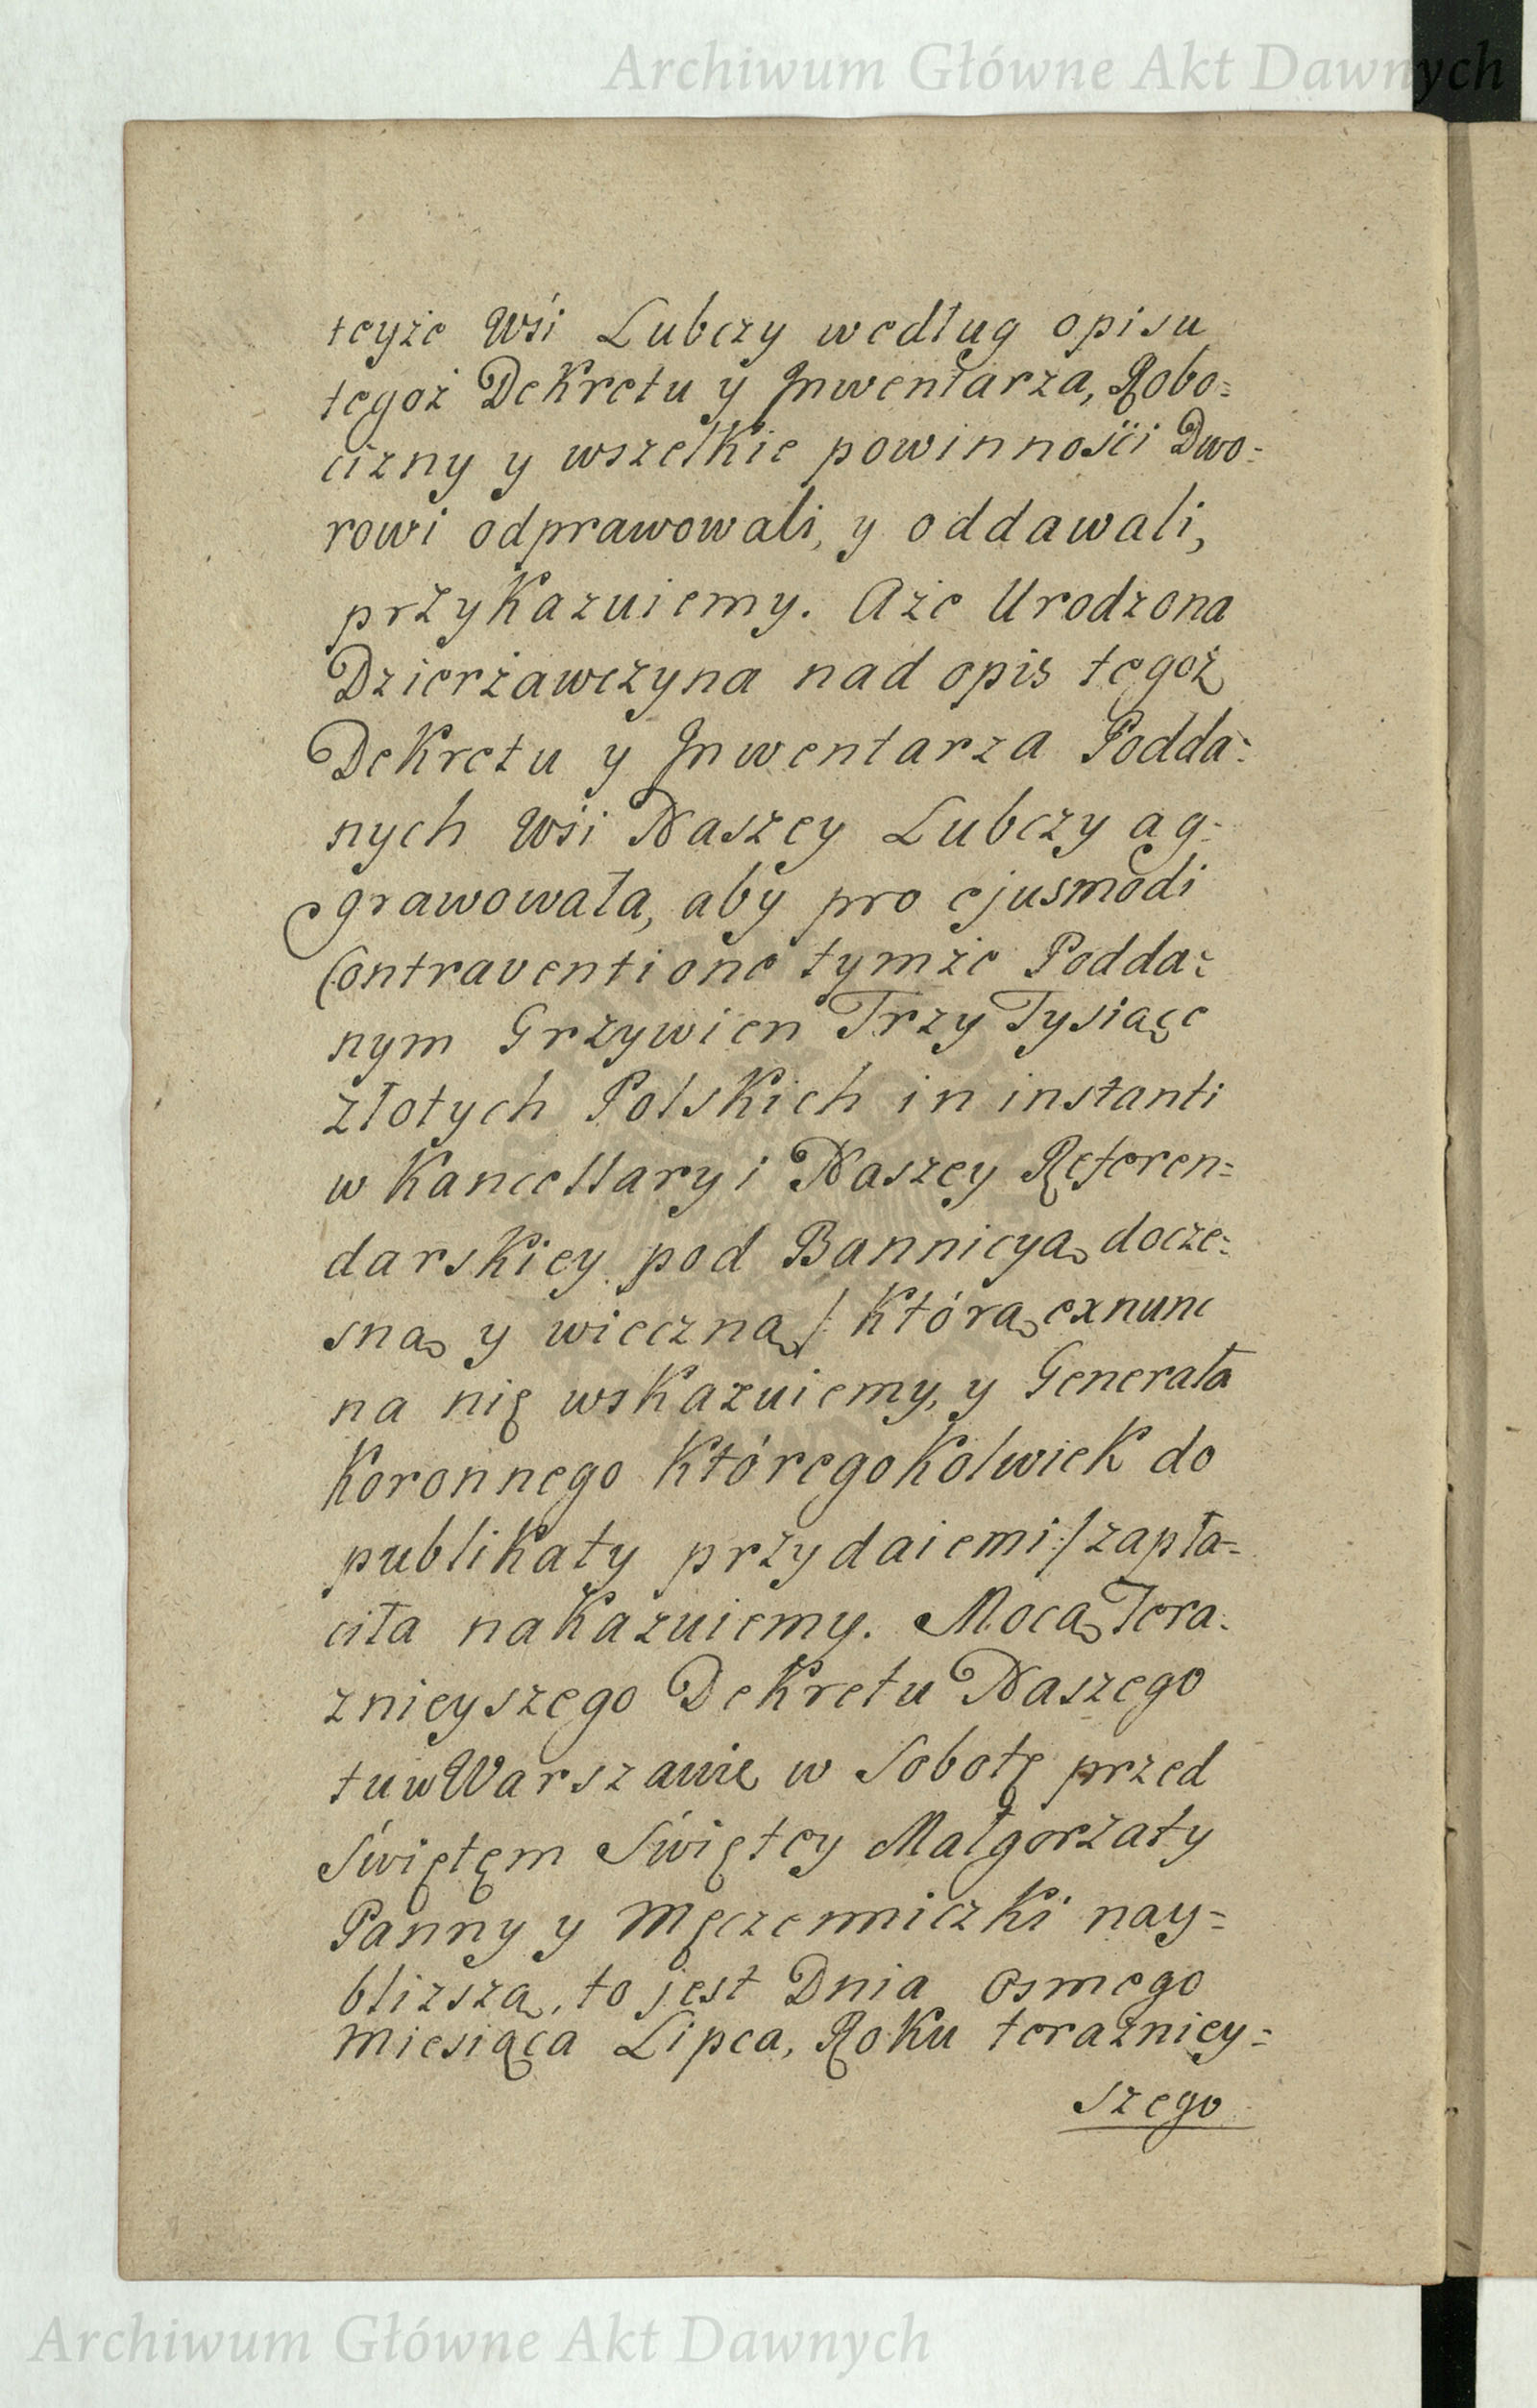 Archiwum Główne Akt Dawnych
teyże Wśi Lubczy według opisu
tegoż Dekretu y Inwentarza, Robo=
cizny y wszelkie powinnośći Dwo=
rowi odprawowali, y oddawali,
przykazuiemy. Aże Urodzona
Dzierżawczyna nad opis tegoż
Dekretu y Inwentarza Podda=
nych Wśi Naszey Lubczy ag=
grawowała, aby pro ejusmodi
Contraventione tymże Podda=
nym Grzywien Trzy Tysiące
złotych Polskich in instanti
w Kancellaryi Naszey Referen=
darskiey pod Bannicyą docze=
sną y wieczną /: którą exnunc
na nię wskazuiemy, y Generała
Koronnego któregokolwiek do
publikaty przydaiemi :/ zapła=
ciła nakazuiemy. Mocą Tera=
znieyszego Dekretu Naszego
tu w Warszawie w Sobotę przed
Świętęm Świętey Małgorzaty
Panny y Męczenniczki nay=
bliższą, to jest Dnia Osmego
Miesiąca Lipca, Roku terazniey=
szego
Archiwum Główne Akt Dawnych